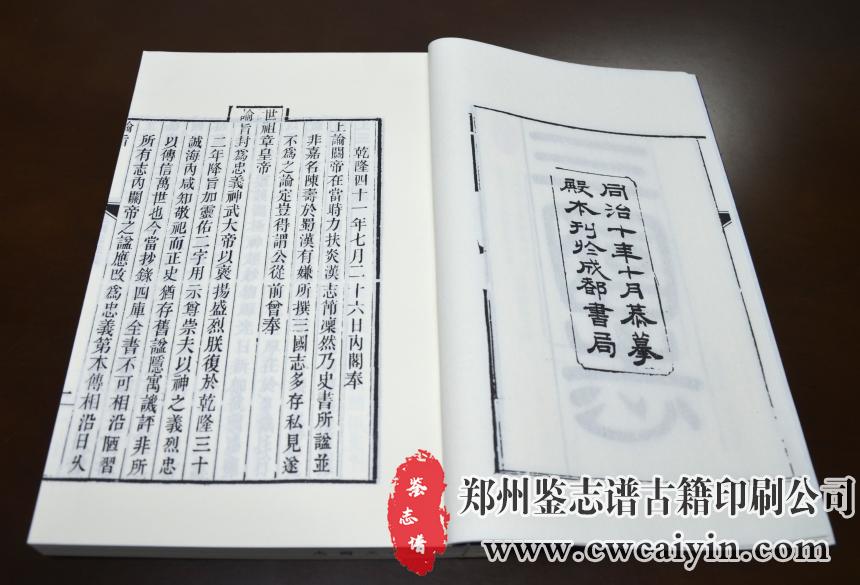 同治十年十月恭摹
殿本刊於成都書局
乾隆四十一年七月二十六日內閣奉
上諭關帝在當時力扶炎漢志節凜然乃史書所諡並
非嘉名陳壽於蜀漢有嫌所撰三國志多存私見遂
不爲之論定豈得謂公從前曾奉
世祖章皇帝
諭旨封爲忠義神武大帝以褒揚盛烈朕復於乾隆三十
二年降旨加靈佑二字用示尊崇夫以神之義烈忠
誠海內咸知敬祀而正史猶存舊諡隱寓譏評非所
以傳信萬世也今當抄錄四庫全書不可相沿陋習
所有志內關帝之諡應改爲忠義第本傳相沿日久
諭旨
二
鉴志谱
郑州鉴志谱古籍印刷公司
www.cwcaiyin.com